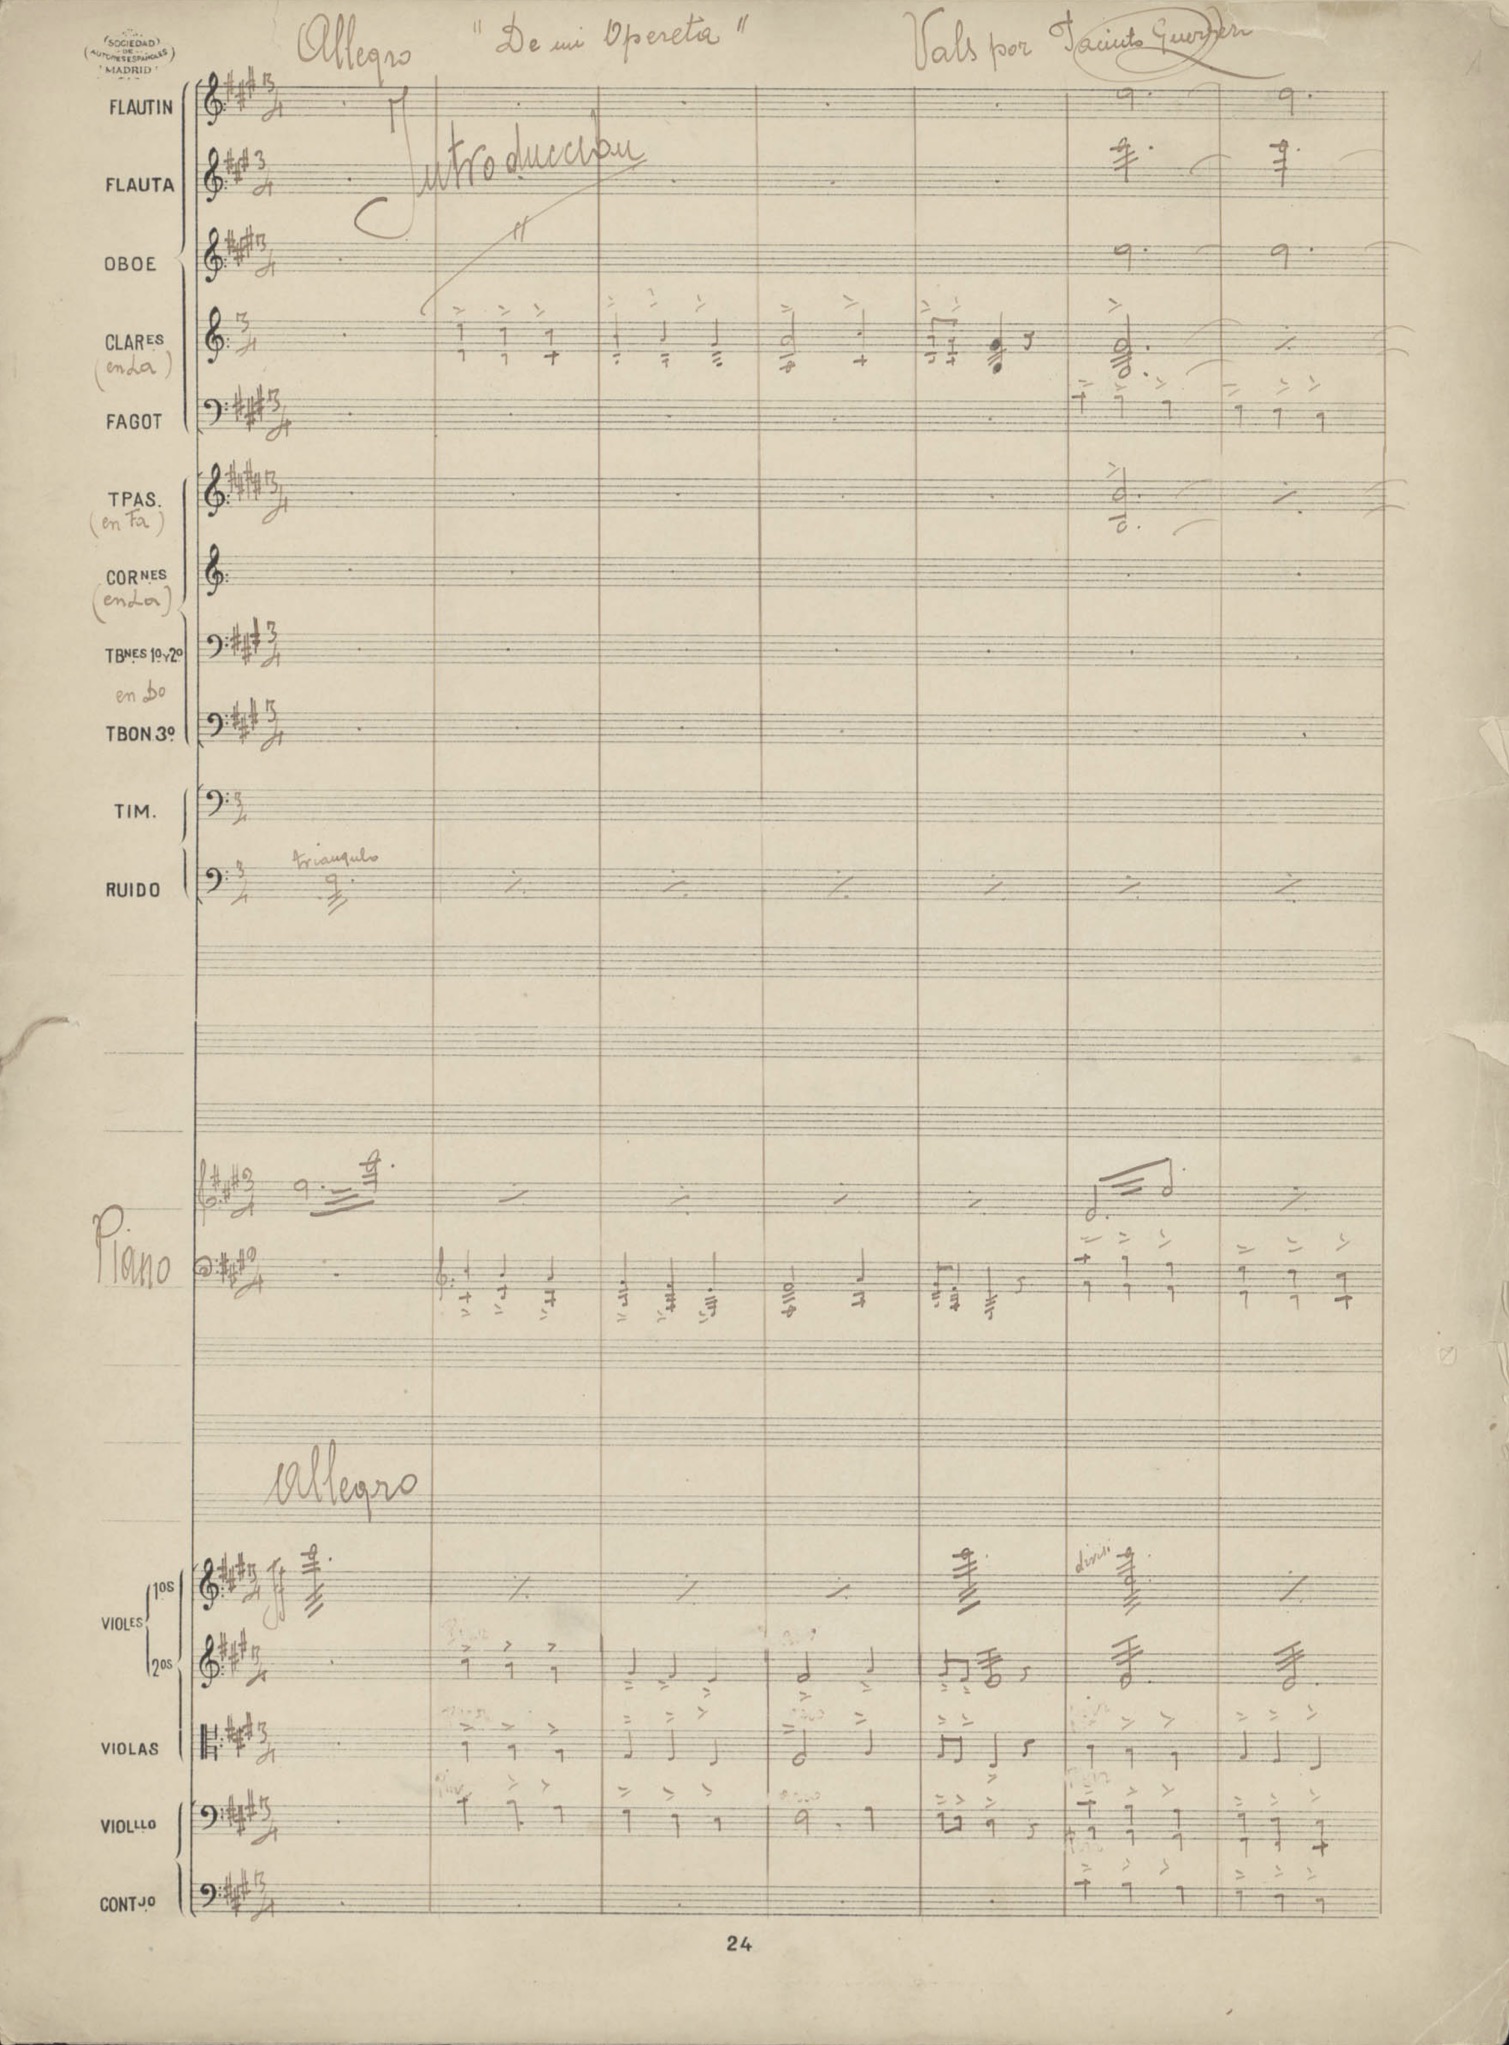 SOCIEDAD
DE
AUTORES ESPAÑOLES
MADRID
Allegro "De mi Opereta" Vals por Jacinto Guerrero
FLAUTIN
Introducción
FLAUTA
OBOE
CLARES
(en La)
FAGOT
TPAS.
(en Fa)
CORNES
(en La)
TBNES 1º Y 2º
en Do
TBON 3º
TIM.
triangulo
RUIDO
Piano
Allegro
ff
divisi
VIOLES 1OS
2OS
VIOLAS
VIOLLLO
CONTJO
24